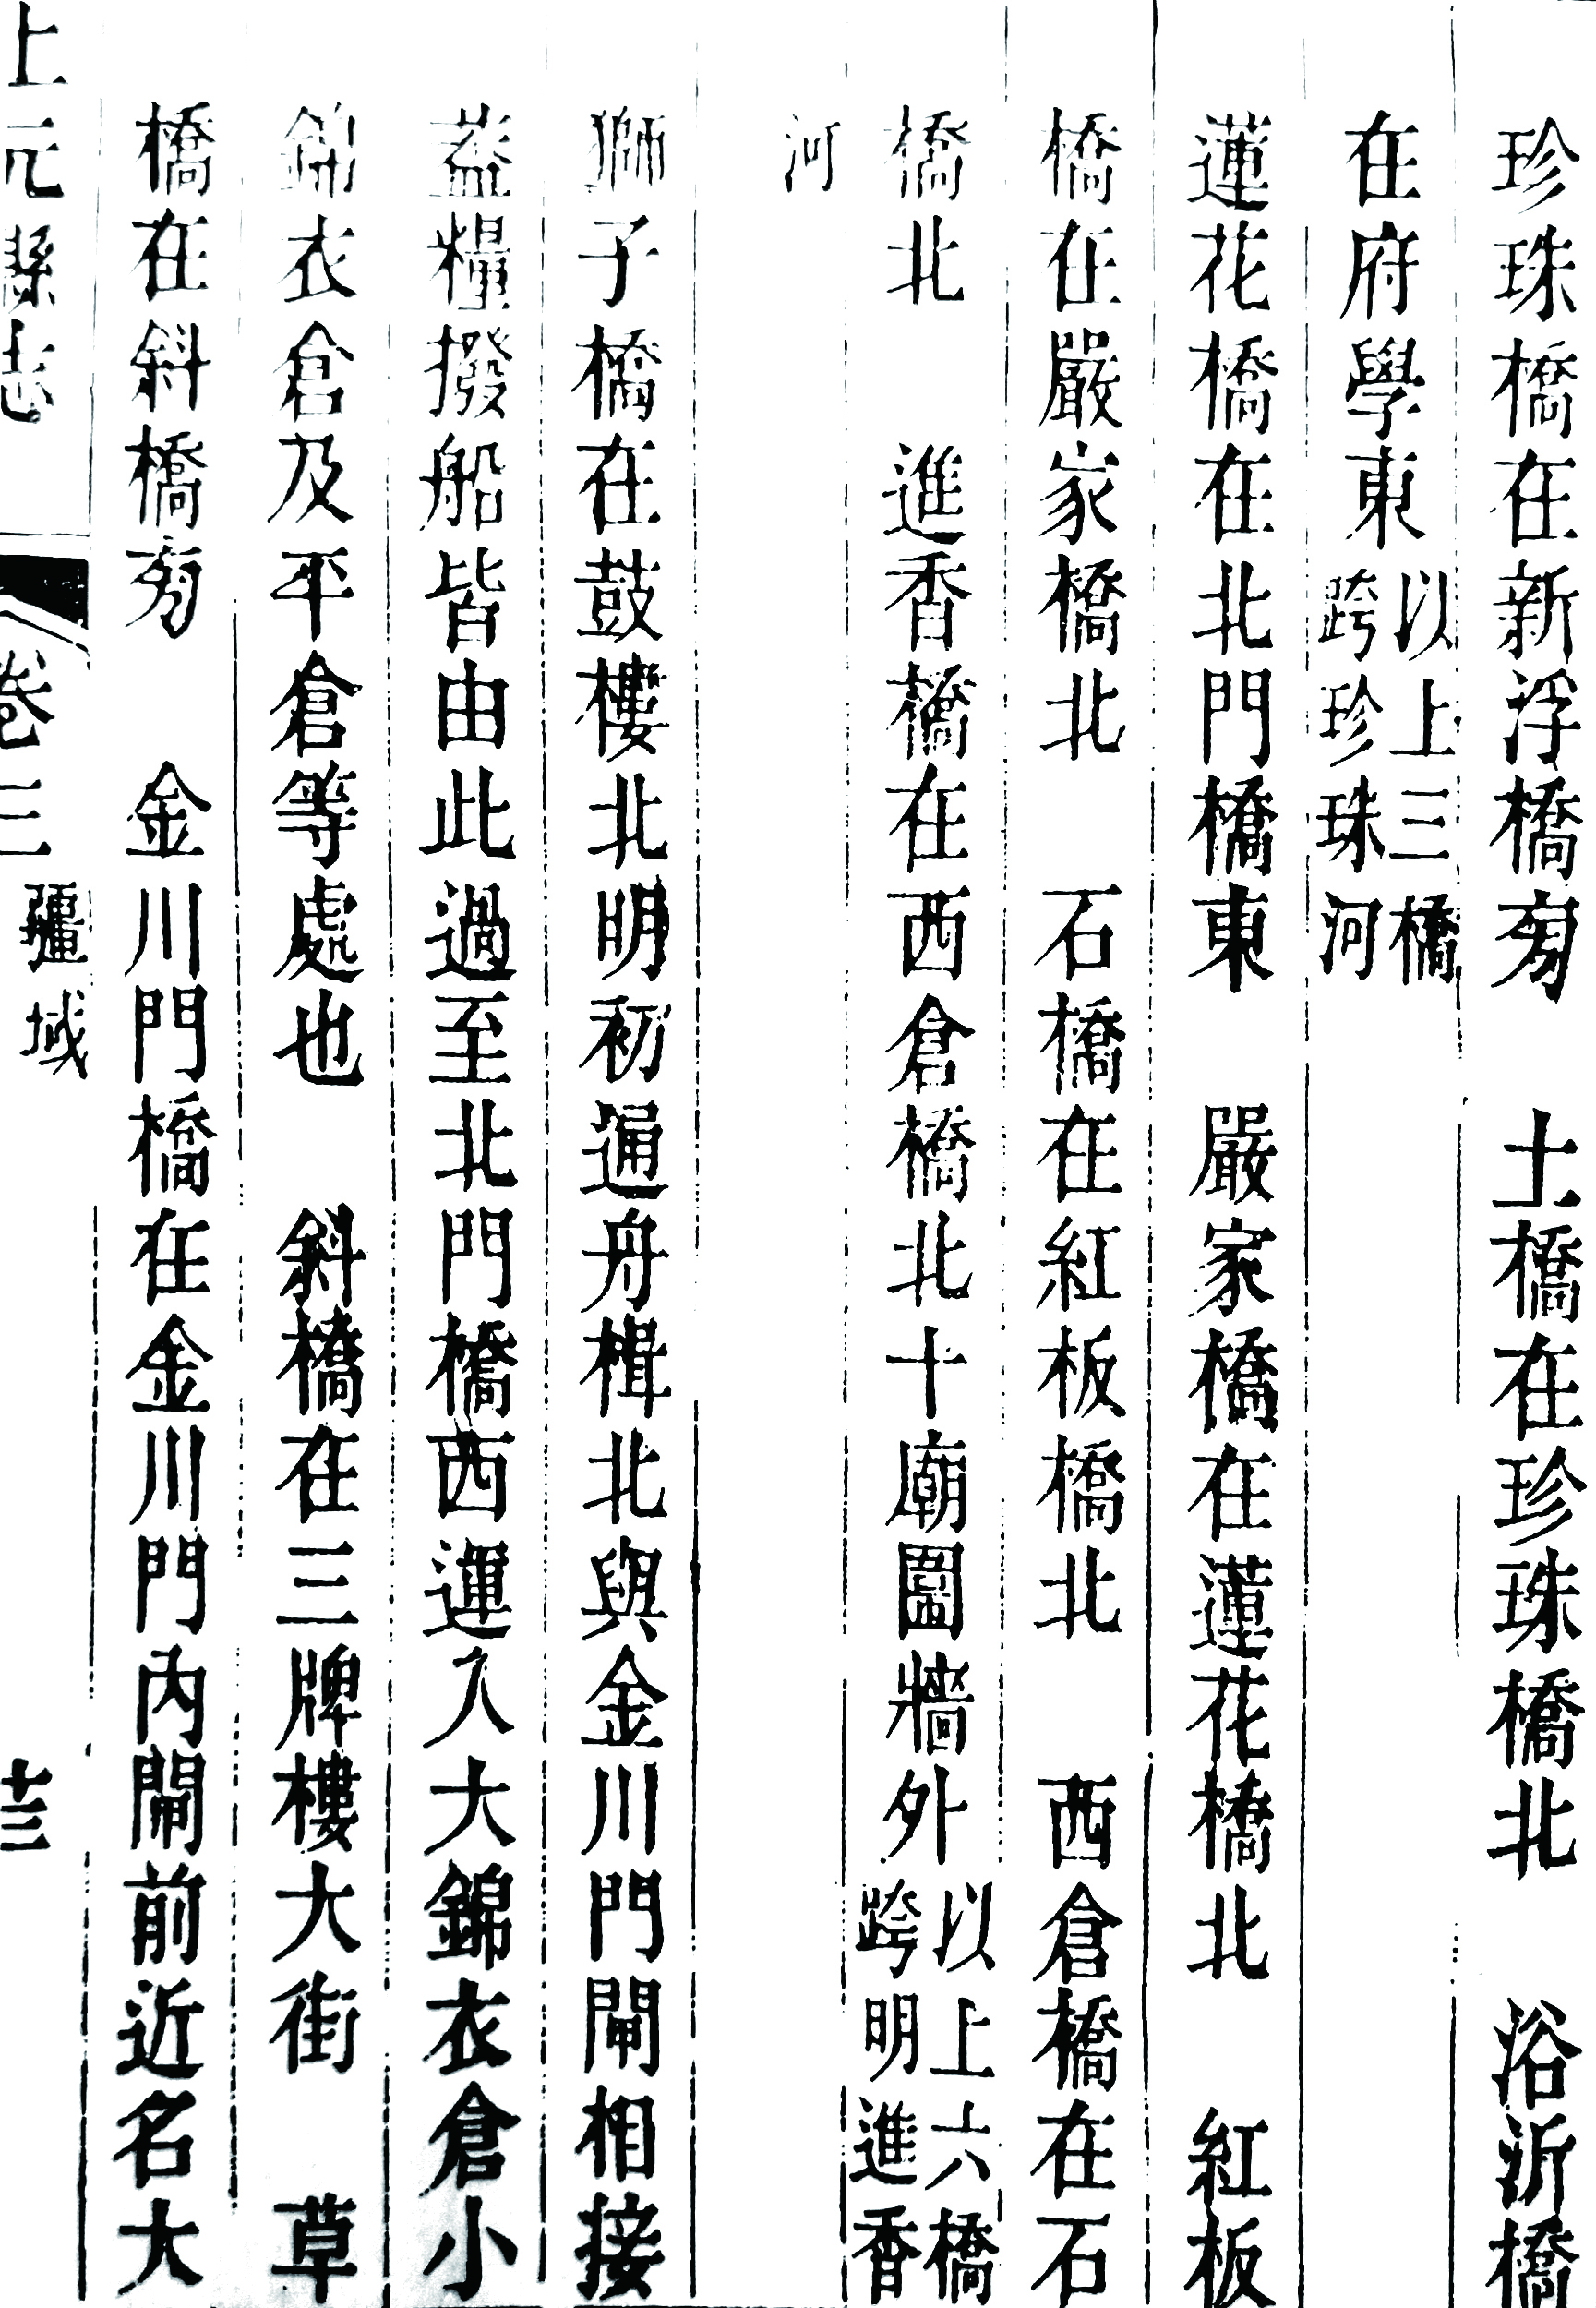 珍珠橋在新浮橋㫄　土橋在珍珠橋北　浴沂橋
在府學東以上三橋跨珍珠河
蓮花橋在北門橋東　嚴家橋在蓮花橋北　紅板
橋在嚴家橋北　石橋在紅板橋北　西倉橋在石
橋北　進香橋在西倉橋北十廟圍牆外以上六橋跨明進香
河
獅子橋在鼓樓北明初通舟楫北與金川門閘相接
葢糧撥船皆由此過至北門橋西運入大錦衣倉小
錦衣倉及平倉等處也　斜橋在三牌樓大街　草
橋在斜橋㫄　金川門橋在金川門內閘前近名大
上元縣志　卷三　疆域　十三